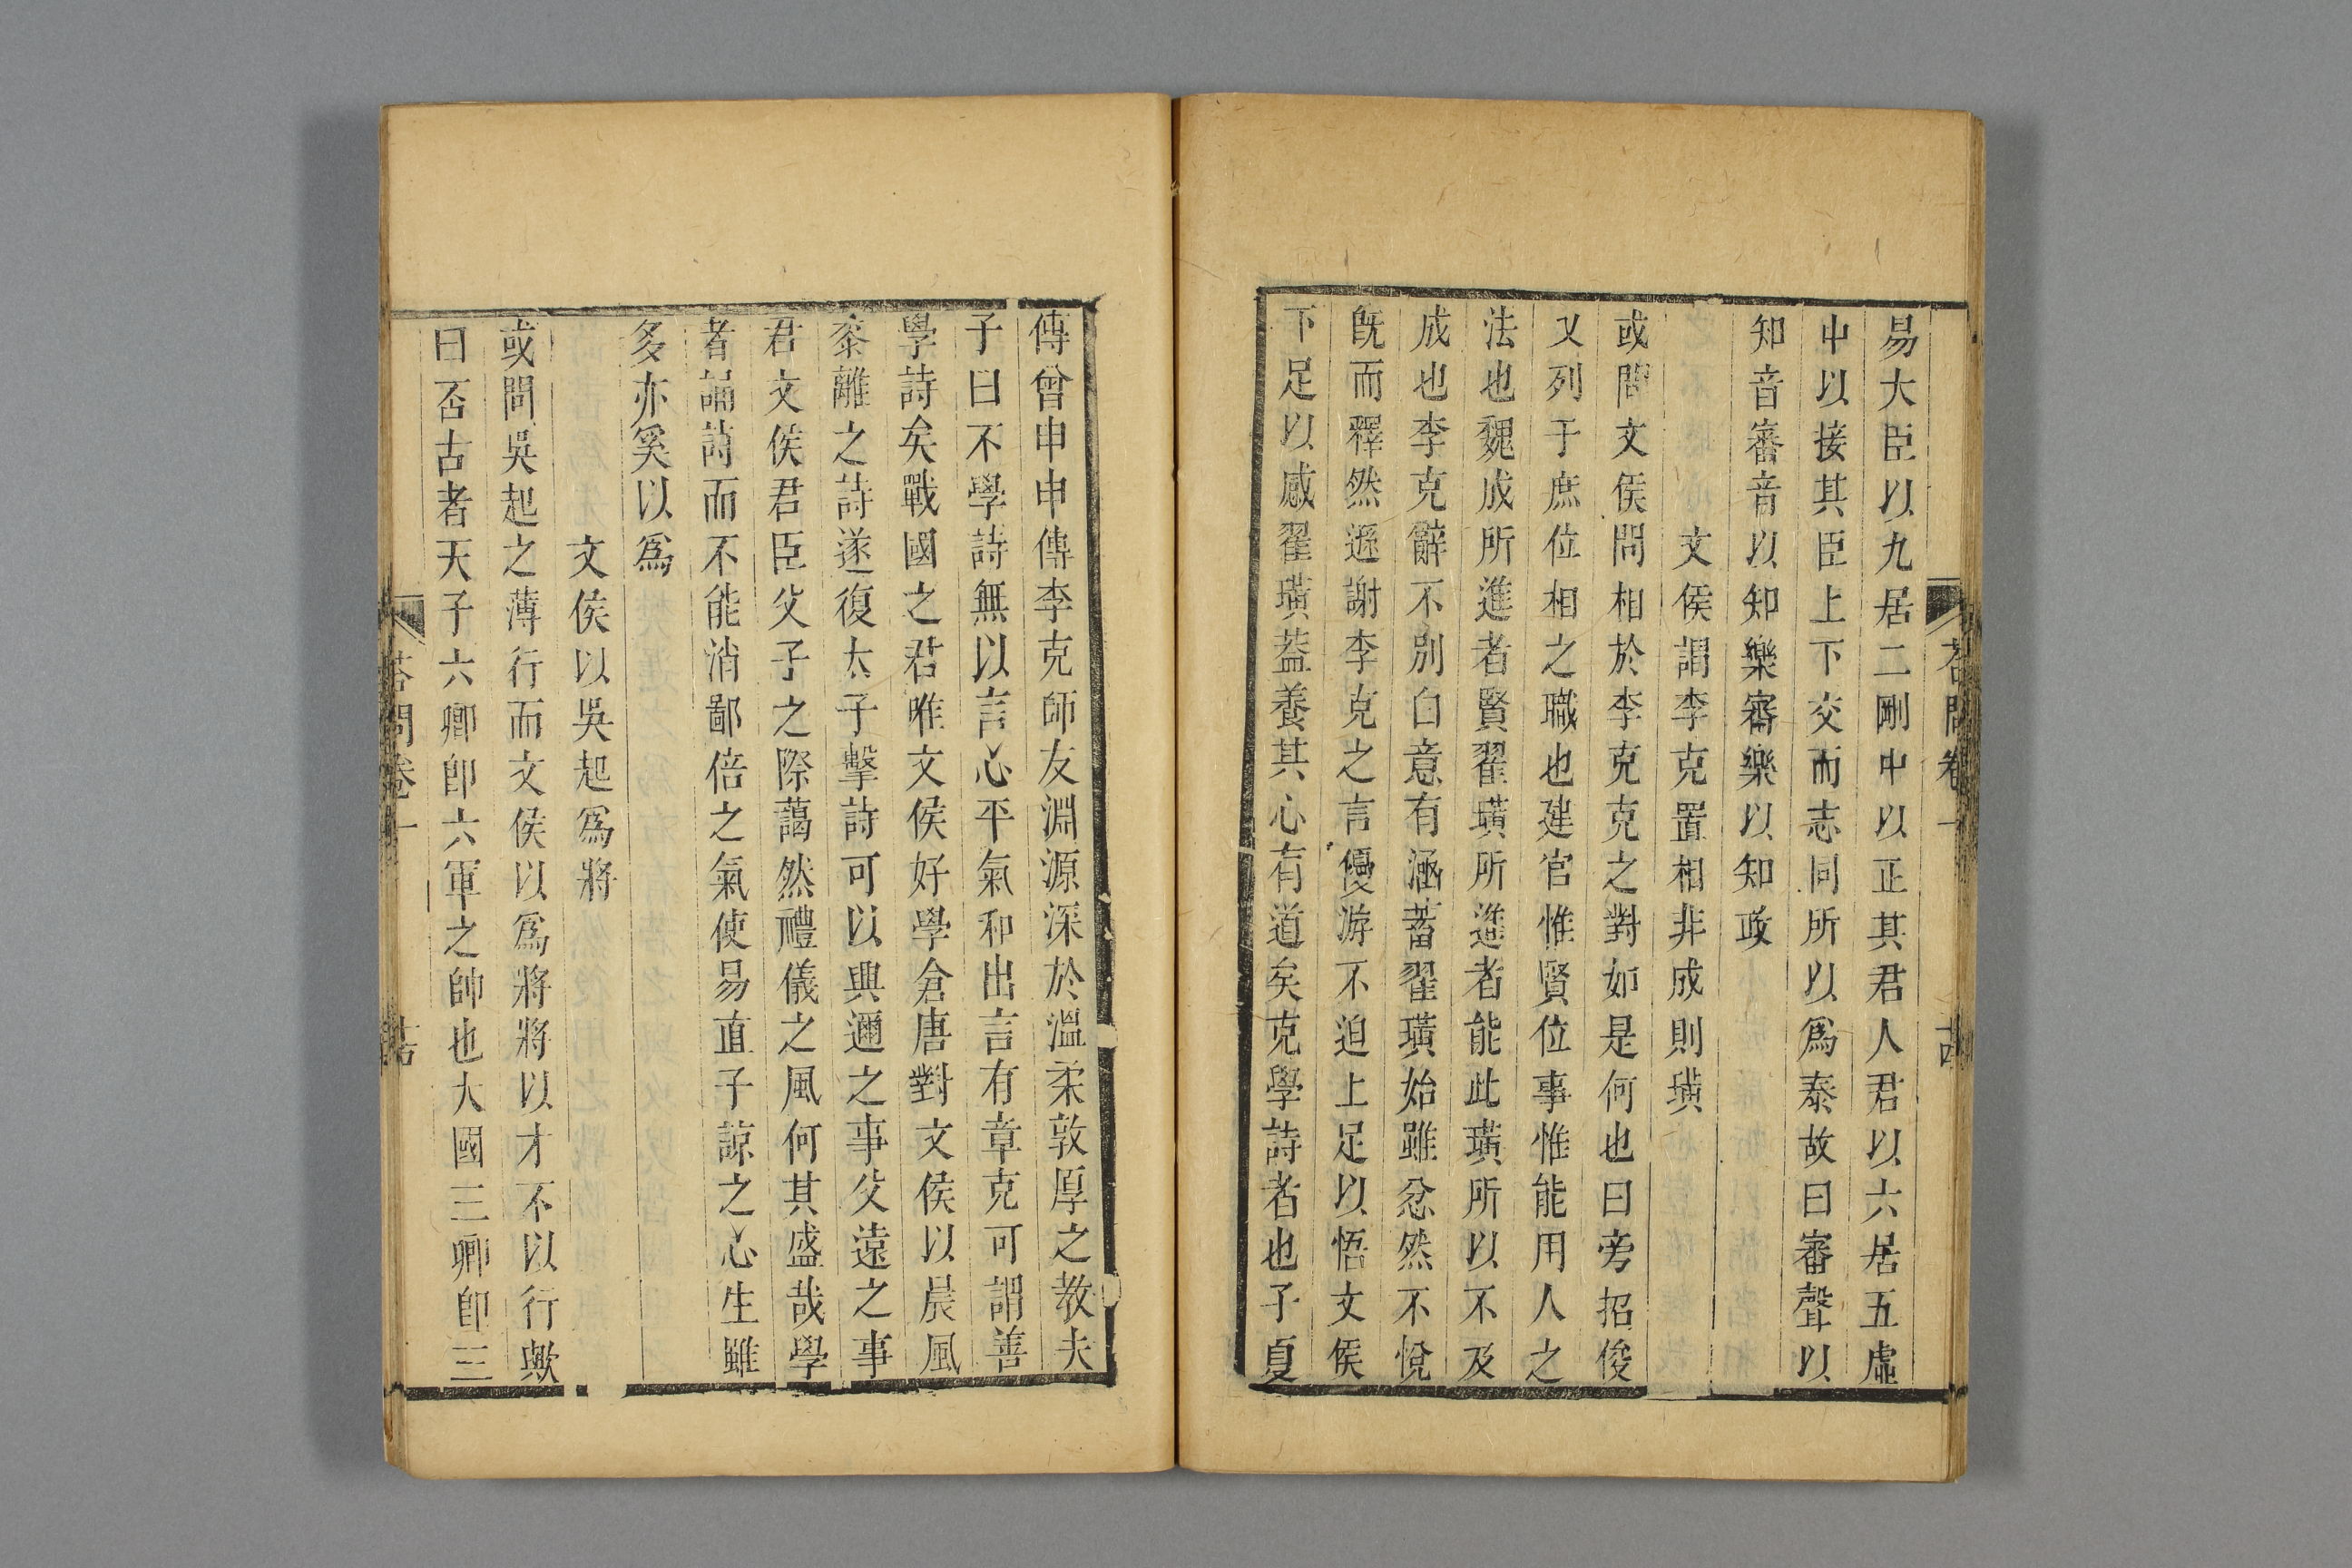 易大臣以九居二剛中以正其君人君以六居五虛
中以接其臣上下交而志同所以爲泰故曰審聲以
知音審音以知知樂審樂以知政
文侯謂李克置相非成則璜
或問文侯問相於李克克之對如是何也曰旁招俊
乂列于庶位相之職也建官惟賢位事惟能用人之
法也魏成所進者賢翟璜所進者能此璜所以不及
成也李克辭不別白意有涵蓄翟璜始雖忿然不悅
旣而釋然遜謝李克之言優游不迫上足以悟文侯
下足以感翟璜葢養其心有道矣克學詩者也子夏
傳曾申申傳李克師友淵源深於溫柔敦厚之敎夫
子曰不學詩無以言心平氣和出言有章克可謂善
學詩矣戰國之君唯文侯好學倉唐對文侯以晨風
黍離之詩遂復太子擊詩可以興邇之事父遠之事
君文侯君臣父子之際藹然禮儀之風何其盛哉學
者誦詩而不能消鄙倍之氣使易直子諒之心生雖
多亦奚以爲
文侯以吳起爲將
或問吳起之薄行而文侯以爲將將以才不以行歟
曰否古者天子六卿卽六軍之帥也大國三卿卽三
答問卷一